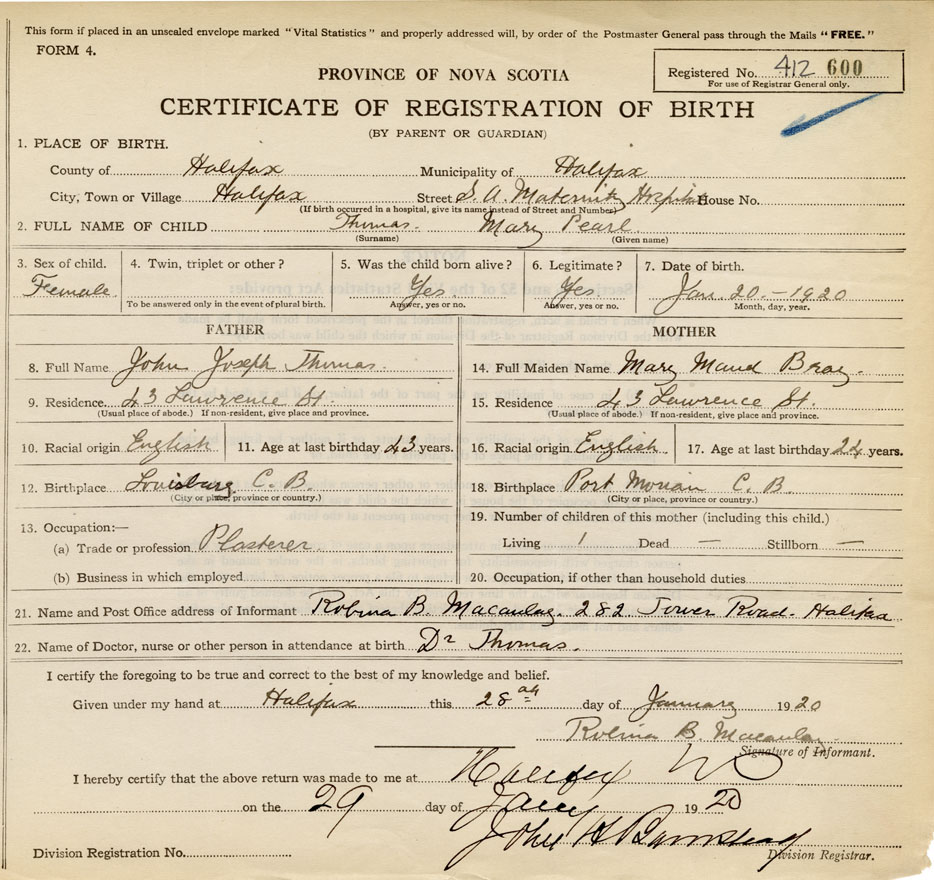 This form if placed in an unsealed envelope marked "Vital Statistics" and properly addressed will, by order of the Postmaster General pass through the Mails "FREE."
FORM 4.
Registered No. 412 600
For use of Registrar General only.
PROVINCE OF NOVA SCOTIA
CERTIFICATE OF REGISTRATION OF BIRTH
(BY PARENT OR GUARDIAN)
1. PLACE OF BIRTH.
County of Halifax Municipality of Halifax
City, Town or Village Halifax Street S. A. Maternity Hospital House No.
(If birth occurred in a hospital, give its name instead of Street and Number)
2. FULL NAME OF CHILD Thomas. Mary Pearl
(Surname) (Given name)
3. Sex of child. 4. Twin, triplet or other? 5. Was the child born alive? 6. Legitimate? 7. Date of birth.
Female Yes Yes Jan. 20.-1920
To be answered only in the event of plural birth. Answer, yes or no. Answer, yes or no. Month, day, year.
FATHER MOTHER
8. Full Name John Joseph Thomas. 14. Full Maiden Name Mary Maud Bray.
9. Residence. 43 Lawrence St. 15. Residence 43 Lawrence St.
(Usual place of abode.) If non-resident, give place and province. (Usual place of abode.) If non-resident, give place and province.
10. Racial origin English 11. Age at last birthday 43 years. 16. Racial origin English 17. Age at last birthday years.
12. Birthplace Louisburg C. B. 18. Birthplace Port Morian C. B.
(City or place, province or country.) (City or place, province or country.)
13. Occupation:— 19. Number of children of this mother (including this child.)
(a) Trade or profession Plasterer. Living 1 Dead — Stillborn —
(b) Business in which employed 20. Occupation, if other than household duties
21. Name and Post Office address of Informant Robina B. Macaulay. 282 Tower Road. Halifax
22. Name of Doctor, nurse or other person in attendance at birth Dr Thomas.
I certify the foregoing to be true and correct to the best of my knowledge and belief.
Given under my hand at Halifax this 28th day of January 1920
Robina B. Macaulay
Signature of Informant.
I hereby certify that the above return was made to me at Halifax
on the 29 day of Jany 1920
John H Barnstead
Division Registration No. Division Registrar.